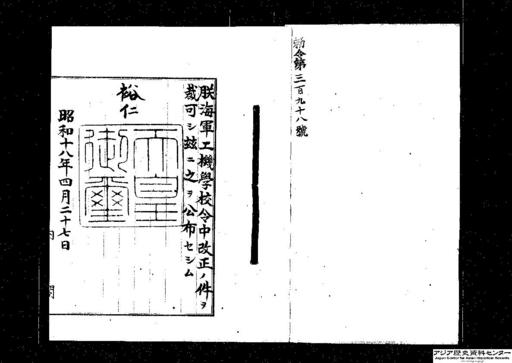 勅令第三百九十八號
朕海軍工機學校令中改正ノ件ヲ
裁可シ玆ニ之ヲ公布セシム
裕仁
天皇
御璽
昭和十八年四月二十七日
内閣
アジア歴史資料センター
Japan Center for Asian Historical Records